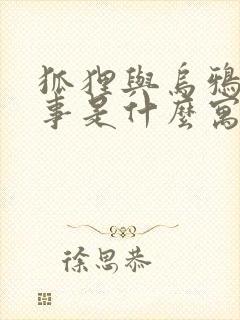 狐狸與烏鴉
事是什麼寓
徐思恭